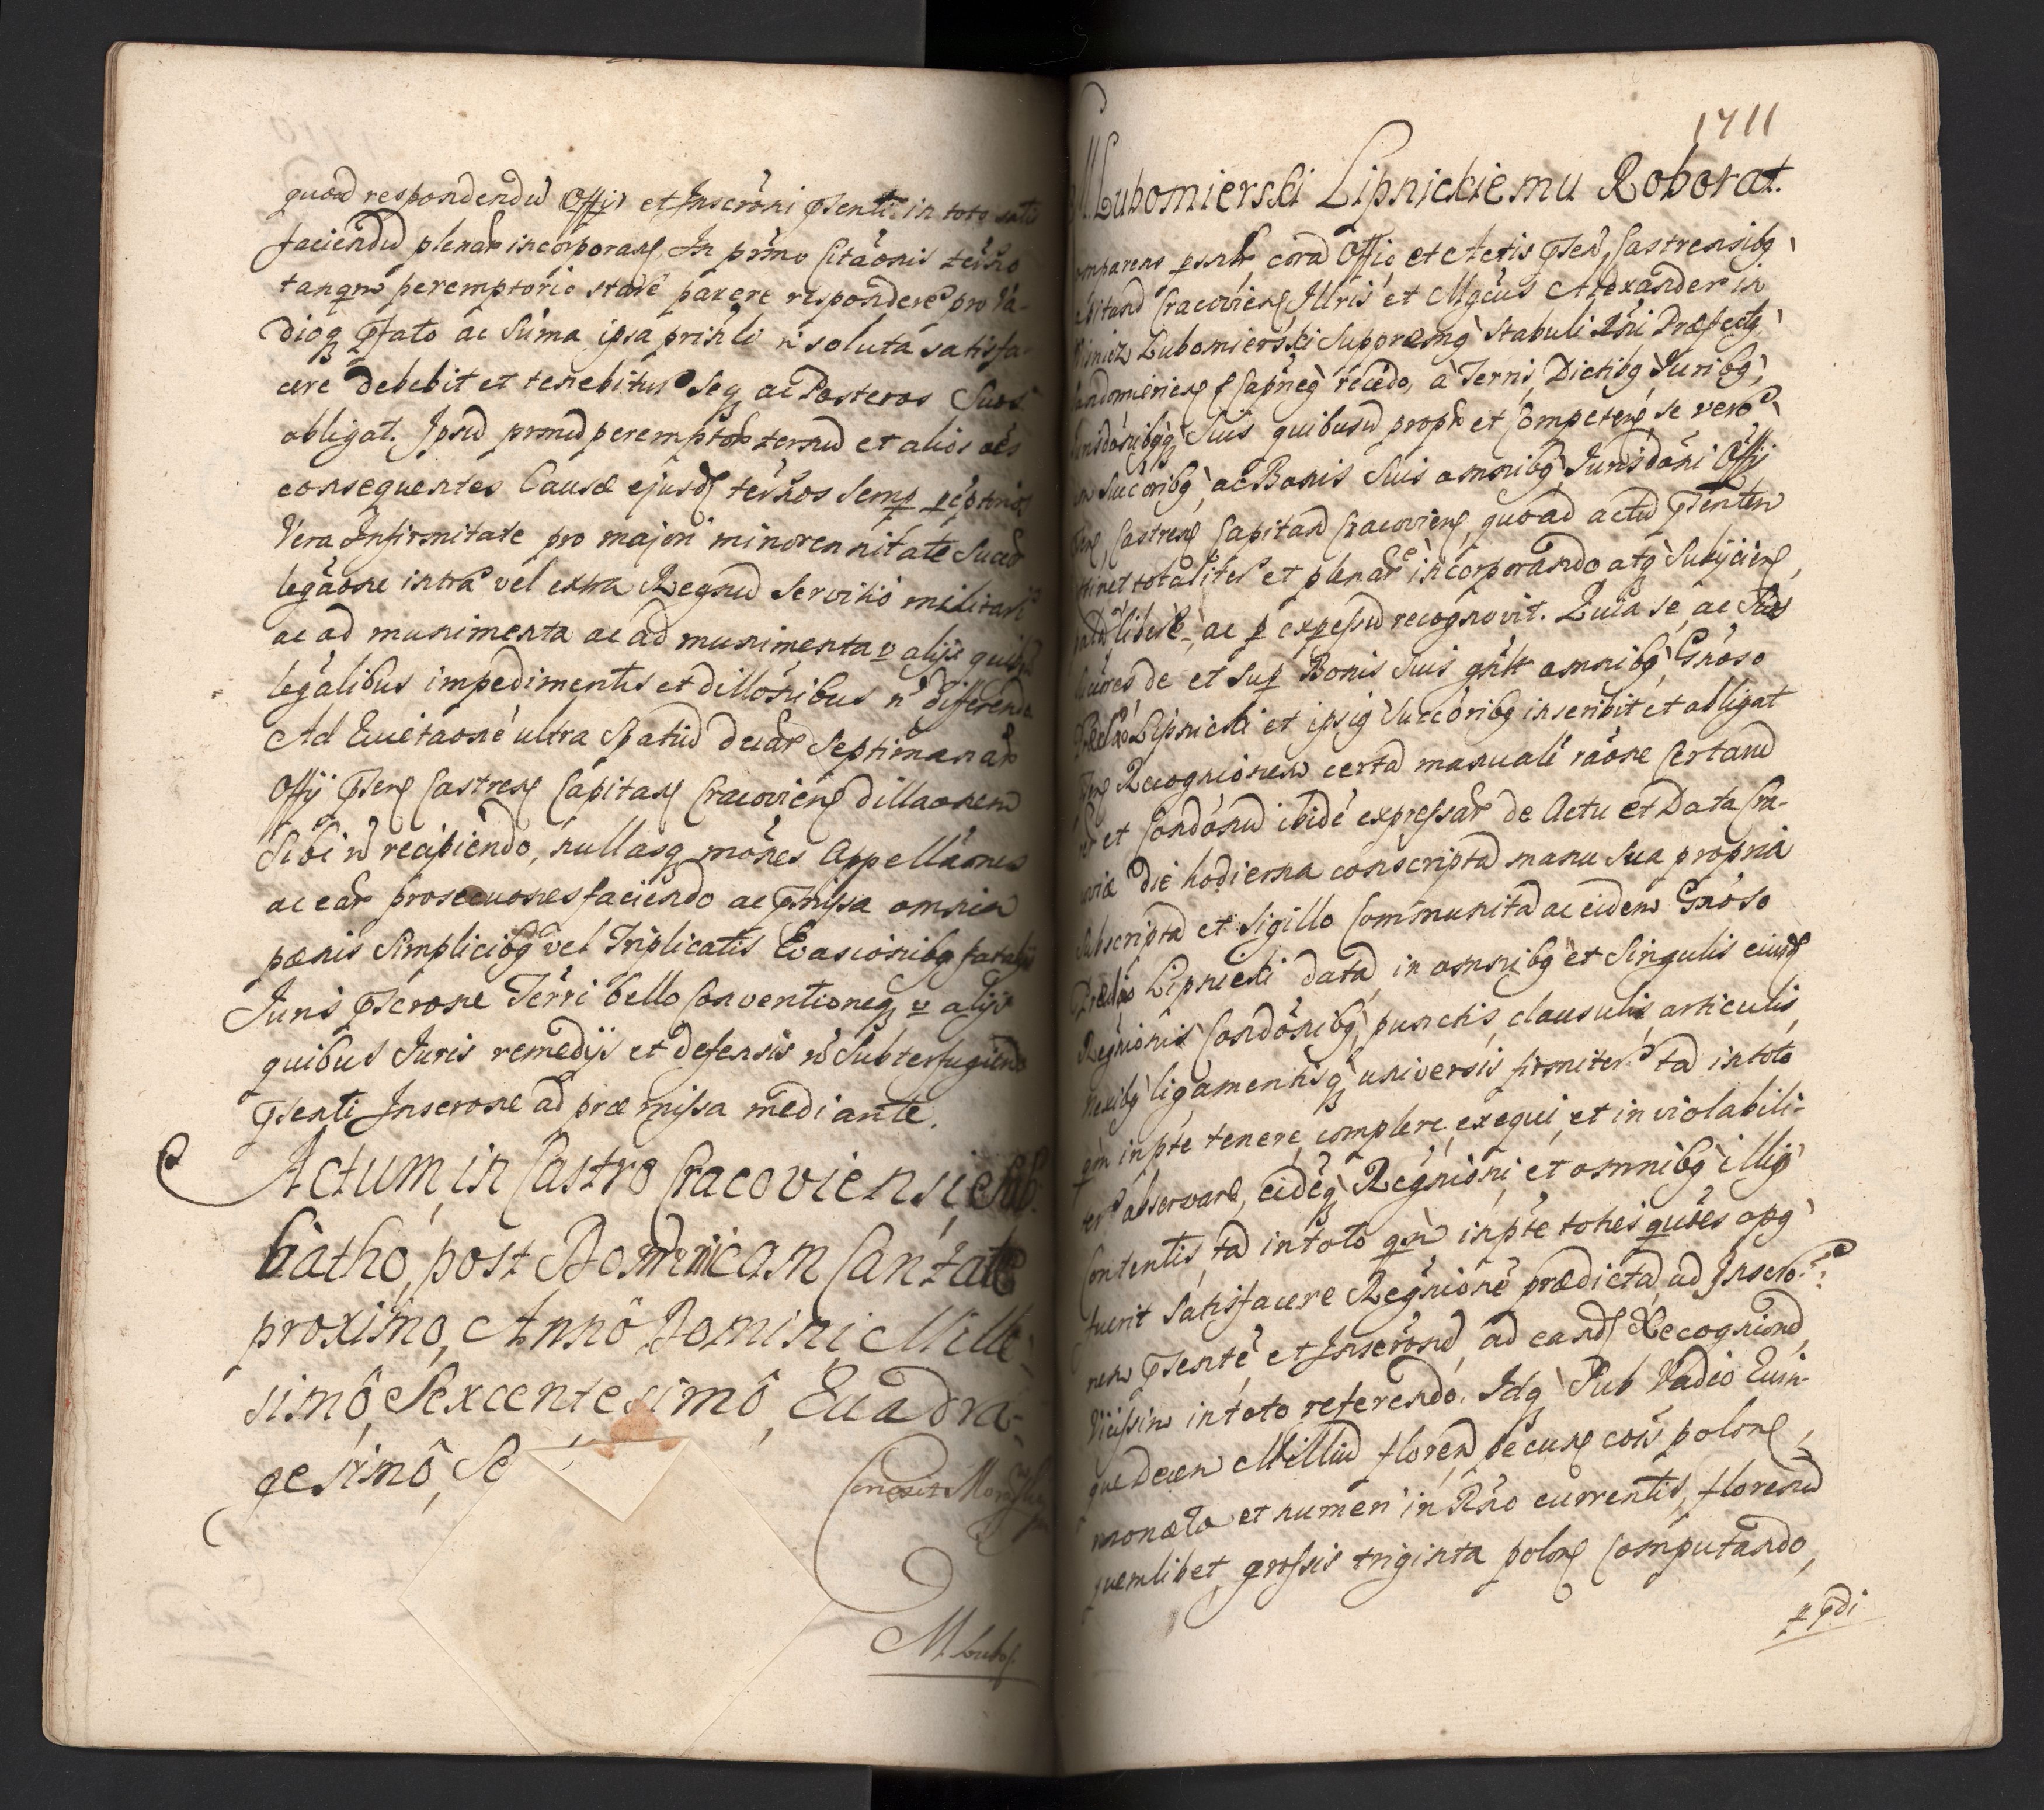 quoad respondendū Offij et Inscrōni pſenti in toto satis
faciendū plenar incorporans. In primo Citāonis termo
tanqm peremptorio stare parere respondere pro Va-
dioq pſato ac Suma ipsa prinli n soluta satisfa-
cere debebit et tenebitur Seq ac Posteros Suos
obligat. Ipsū primū peremptor termū et alios oēs
consequentes Causæ ejusd termos Semp
Vera Infirmitate pro majori minorennitate Succ
legāone intra vel extra Regnū Servitio militari
ac ad munimenta ac ad munimenta v alijs quibus
legalibus impedimentis et dillōnibus n differendo
Ad Evictaonē ultra Spatiū duar Septimanar
Offij pſen Castren Capitan Cracovien dillaonem
Sibi n recipiendo, nullasq mōnes Appellāones
ac ear prosecuones faciendo ac pmissa omnia
pœnis Simplicibq vel Triplicatis Evasionibq
Juris pſcrone Terri bello Conventioneq v alijs
quibus Juris remedijs et defensis n Subterfugiendo
pſenti Inscrone ad præmissa mediante.
Actum, in Castro Cracoviensi, Sab-
batho, post Dominicam Cantate
proximo, Annô Domini Mille-
simô, Sexcentesimô, Quadra-
gesimô, Se
M Lubo.
1711
Lubomierski Lipnickiemu Roborat.
omparens psnlr corā Offio et Actis pſen, Castrensibq
Capitan Cracovien Illris et Mgcus Alexander in
Wiśnicz Lubomierski Suppremq Stabuli Rni Præfectq
Sandomirien Capneq recedo, à Terris, Dictibq Juribq,
Jurisdōnibqq Suis quibusū propr et Competen, se vero
Succōribq, ac Bonis Suis omnibq, Jurisdōni Offij
pſen, Castren Capitan Cracovien, quoad actū pſenten
totaliter et plenar incorporando atq Subijcien,
palā libere, ac p expressū recognovit. Quia se, ac Suos
Succres de et Sup Bonis Suis gnlr omnibq, Gnoso
Lipnicki et ipsiq Succōribq inscribit et obligat
Recognionem certā manualē rāone Certarū
et Condōnū ibidē expressar de Actu et Data Cra-
coviæ die hodierna conscriptā manu Sua propria
Subscriptā et Sigillo Communitā ac eidem Gnoso
Lipnicki datā, in omnibq et Singulis eiusd
Regnionis Condōnibq, punctis, clausulis, articulis,
Nexibq ligamentisq universis firmiter tā in toto
qm in pte tenere, complere, exequi, et inviolabili-
ter observare, eidēq Regnioni, et omnibq illiq
Contentis tā in toto qm in pte toties quoties opq
fuerit Satisfacere Regnionē prædictā, ad Inscro-
nem pſentē et Inscronū, ad eand Recognionū
Vicissim in toto referendo. Idq Sub Vadio Quin-
que decem Milliū floren pecun coīs polon,
moneta et numeri in Rno currentis, florenū
quemlibet grossis triginta polon Computando,